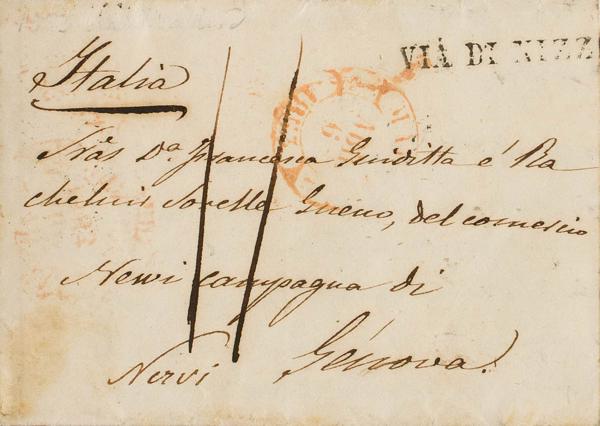 VIÁ DI NIZZ
Italia
Sras Da. Francesca Giuditta é Ra
chelina Sorelle Gneco, del comercio
Newi campagna di
Nervi Génova.